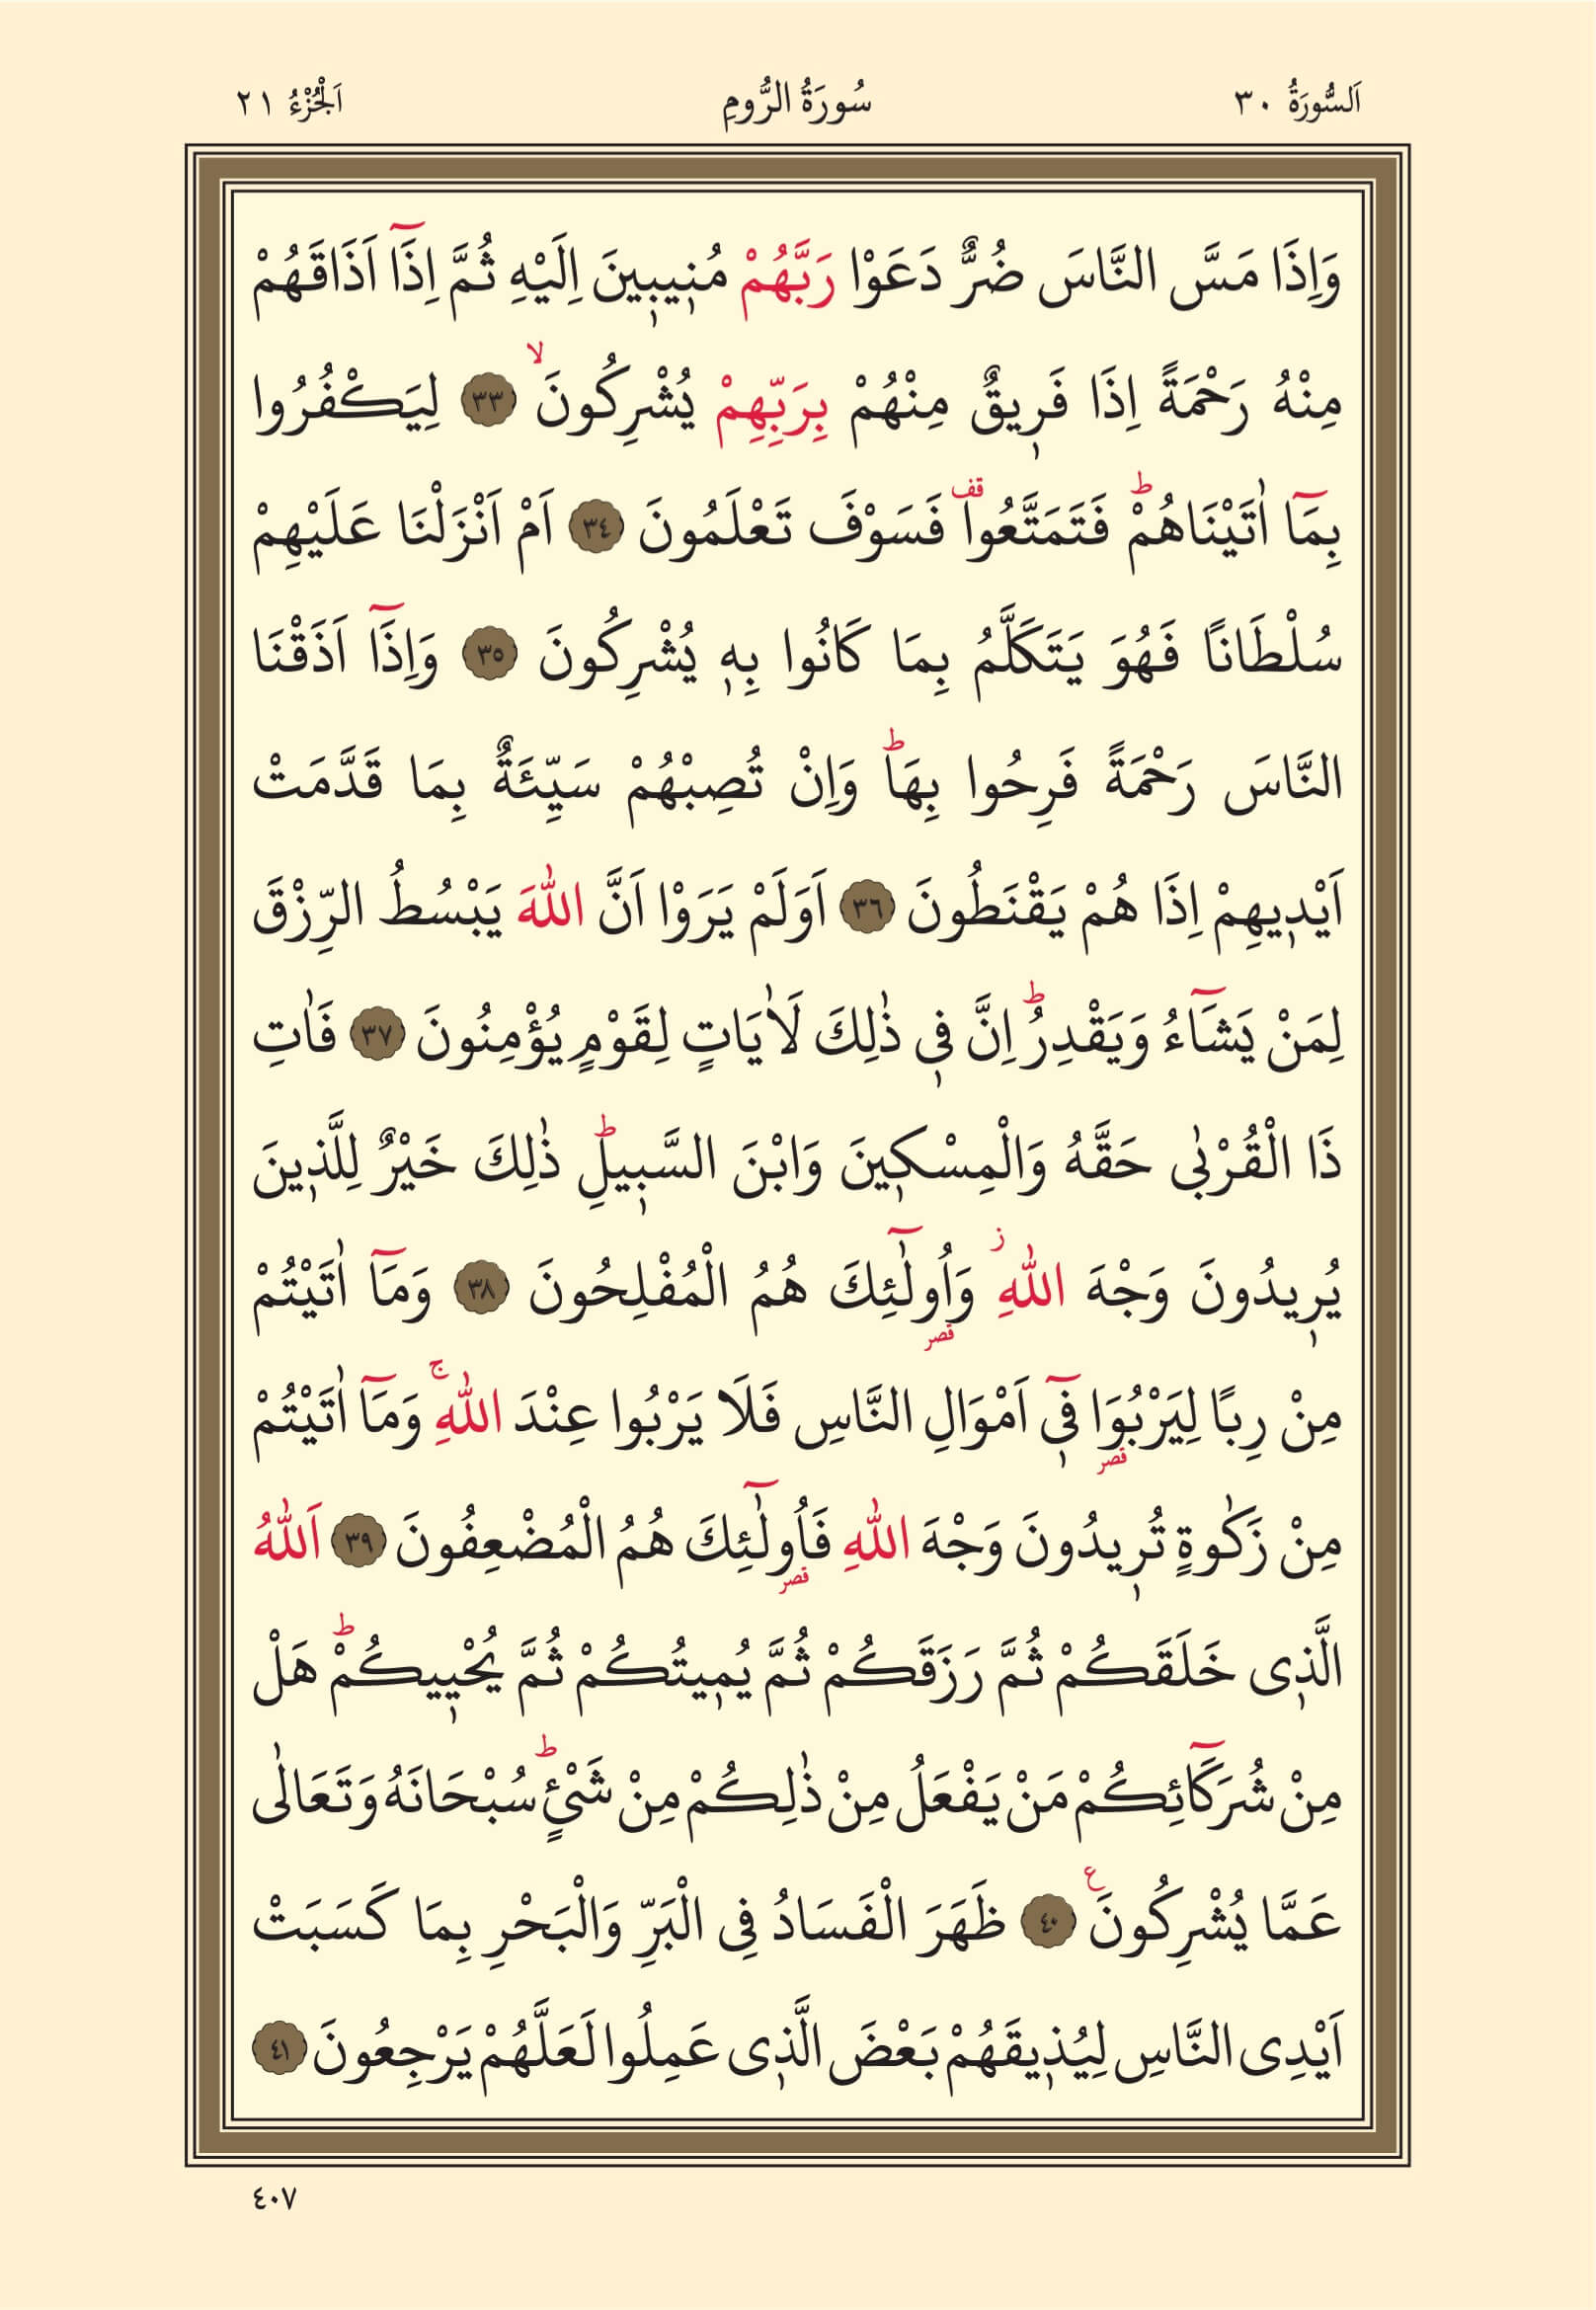 اَلسُّورَةُ ٣٠ سُورَةُ الرُّومِ اَلْجُزْءُ ٢١
وَاِذَا مَسَّ النَّاسَ ضُرٌّ دَعَوْا رَبَّهُمْ مُنٖيبٖينَ اِلَيْهِ ثُمَّ اِذَٓا اَذَاقَهُمْ
مِنْهُ رَحْمَةً اِذَا فَرٖيقٌ مِنْهُمْ بِرَبِّهِمْ يُشْرِكُونَۙ ٣٣ لِيَكْفُرُوا
بِمَٓا اٰتَيْنَاهُمْؕ فَتَمَتَّعُواࣞ فَسَوْفَ تَعْلَمُونَ ٣٤ اَمْ اَنْزَلْنَا عَلَيْهِمْ
سُلْطَانًا فَهُوَ يَتَكَلَّمُ بِمَا كَانُوا بِهٖ يُشْرِكُونَ ٣٥ وَاِذَٓا اَذَقْنَا
النَّاسَ رَحْمَةً فَرِحُوا بِهَاؕ وَاِنْ تُصِبْهُمْ سَيِّئَةٌ بِمَا قَدَّمَتْ
اَيْدٖيهِمْ اِذَا هُمْ يَقْنَطُونَ ٣٦ اَوَلَمْ يَرَوْا اَنَّ اللّٰهَ يَبْسُطُ الرِّزْقَ
لِمَنْ يَشَٓاءُ وَيَقْدِرُؕ اِنَّ فٖى ذٰلِكَ لَاٰيَاتٍ لِقَوْمٍ يُؤْمِنُونَ ٣٧ فَاٰتِ
ذَا الْقُرْبٰى حَقَّهُ وَالْمِسْكٖينَ وَابْنَ السَّبٖيلِؕ ذٰلِكَ خَيْرٌ لِلَّذٖينَ
يُرٖيدُونَ وَجْهَ اللّٰهِؗ وَاُو۬لٰٓئِكَ هُمُ الْمُفْلِحُونَ ٣٨ وَمَٓا اٰتَيْتُمْ
مِنْ رِبًا لِيَرْبُوَا۬ فٖٓى اَمْوَالِ النَّاسِ فَلَا يَرْبُوا عِنْدَ اللّٰهِۚ وَمَٓا اٰتَيْتُمْ
مِنْ زَكٰوةٍ تُرٖيدُونَ وَجْهَ اللّٰهِ فَاُو۬لٰٓئِكَ هُمُ الْمُضْعِفُونَ ٣٩ اَللّٰهُ
الَّذٖى خَلَقَكُمْ ثُمَّ رَزَقَكُمْ ثُمَّ يُمٖيتُكُمْ ثُمَّ يُحْيٖيكُمْؕ هَلْ
مِنْ شُرَكَٓائِكُمْ مَنْ يَفْعَلُ مِنْ ذٰلِكُمْ مِنْ شَىْءٍؕ سُبْحَانَهُ وَتَعَالٰى
عَمَّا يُشْرِكُونَࣖ ٤٠ ظَهَرَ الْفَسَادُ فِى الْبَرِّ وَالْبَحْرِ بِمَا كَسَبَتْ
اَيْدِى النَّاسِ لِيُذٖيقَهُمْ بَعْضَ الَّذٖى عَمِلُوا لَعَلَّهُمْ يَرْجِعُونَ ٤١
٤٠٧